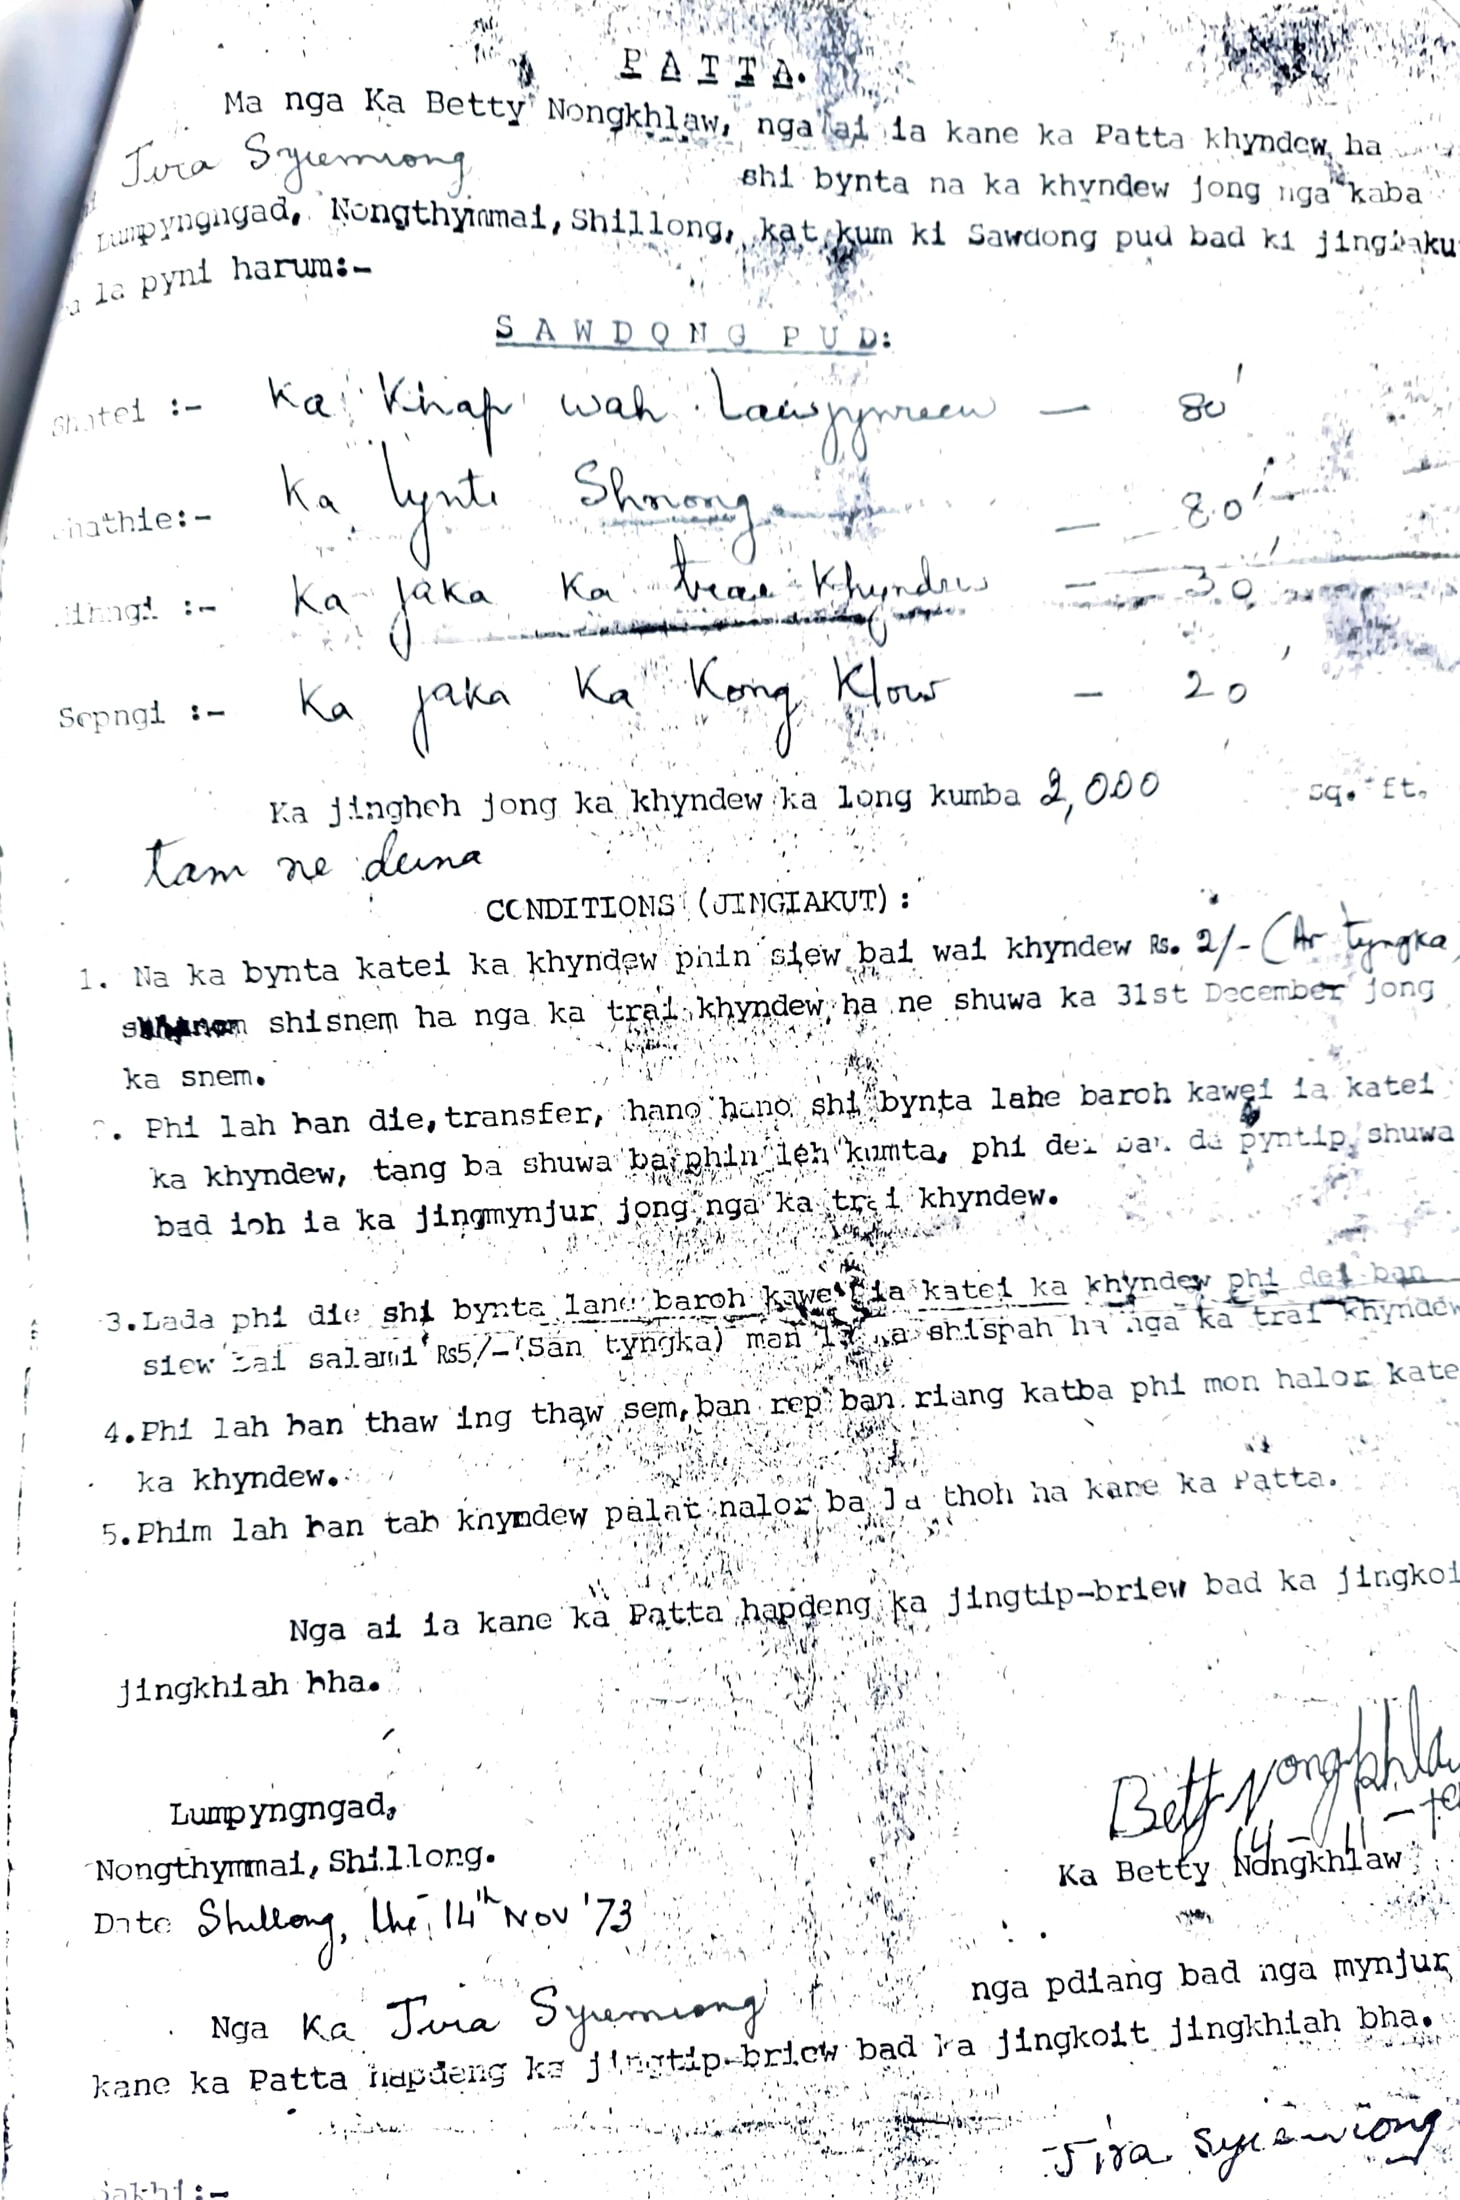 P A T T A.
Ma nga Ka Betty Nongkhlaw, nga ai ia kane ka Patta khyndew ha
Jira Syiemiong shi bynta na ka khyndew jong nga kaba
Lumpyngngad, Nongthymmai, Shillong, kat kum ki Sawdong pud bad ki jingiaku
la pyni harum:-
S A W D O N G P U D:
Shatei :- Ka Khap wah Lawpynreew — 80'
hathie:- Ka lynti Shnong — 80'
ihngi :- Ka jaka ka trai Khyndew — 30'
Sepngi :- Ka jaka Ka Kong Klow — 20'
Ka jingheh jong ka khyndew ka long kumba 2,000 sq. ft.
tam ne duna
CONDITIONS (JINGIAKUT):
1. Na ka bynta katei ka khyndew phin siew bai wai khyndew Rs. 2/- (Ar tyngka
shisnem ha nga ka trai khyndew ha ne shuwa ka 31st December jong
ka snem.
. Phi lah ban die, transfer, hano hano shi bynta lane baroh kawei ia katei
ka khyndew, tang ba shuwa ba phin leh kumta, phi dei ban da pyntip shuwa
bad ioh ia ka jingmynjur jong nga ka trai khyndew.
3. Lada phi die shi bynta lane baroh kawei ia katei ka khyndew phi dei ban
siew bai salami Rs5/- (San tyngka) man la ka shispah ha nga ka trai khyndew
4. Phi lah ban thaw ing thaw sem, ban rep ban riang katba phi mon halor kate
ka khyndew.
5. Phim lah ban tah khyndew palat nalor ba la thoh ha kane ka Patta.
Nga ai ia kane ka Patta hapdeng ka jingtip-briew bad ka jingkoi
jingkhiah bha.
Lumpyngngad,
Nongthymmai, Shillong.
Date Shillong, the 14th Nov '73
Betty Nongkhla
14 - 11 -
Ka Betty Nongkhlaw
Nga Ka Jira Syiemiong nga pdiang bad nga mynjur
kane ka Patta hapdeng ka jingtip-briew bad ka jingkoit jingkhiah bha.
Jira Syiemiong
sakhi:-